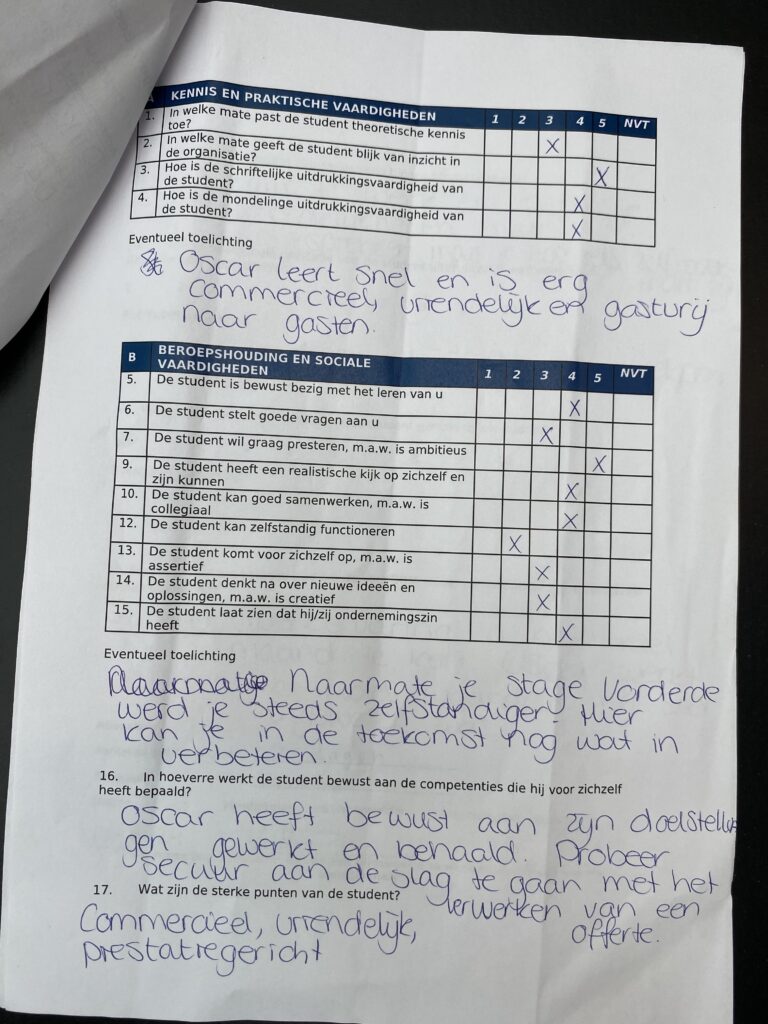 KENNIS EN PRAKTISCHE VAARDIGHEDEN 1 2 3 4 5 NVT
1. In welke mate past de student theoretische kennis
toe? X
2. In welke mate geeft de student blijk van inzicht in
de organisatie? X
3. Hoe is de schriftelijke uitdrukkingsvaardigheid van
de student? X
4. Hoe is de mondelinge uitdrukkingsvaardigheid van
de student? X
Eventueel toelichting
Oscar leert snel en is erg
commercieel, vriendelijk en gastvrij
naar gasten.
B BEROEPSHOUDING EN SOCIALE
VAARDIGHEDEN 1 2 3 4 5 NVT
5. De student is bewust bezig met het leren van u X
6. De student stelt goede vragen aan u X
7. De student wil graag presteren, m.a.w. is ambitieus X
9. De student heeft een realistische kijk op zichzelf en
zijn kunnen X
10. De student kan goed samenwerken, m.a.w. is
collegiaal X
12. De student kan zelfstandig functioneren X
13. De student komt voor zichzelf op, m.a.w. is
assertief X
14. De student denkt na over nieuwe ideeën en
oplossingen, m.a.w. is creatief X
15. De student laat zien dat hij/zij ondernemingszin
heeft X
Eventueel toelichting
Naarmate je stage vorderde
werd je steeds zelfstandiger. Hier
kan je in de toekomst nog wat in
verbeteren.
16. In hoeverre werkt de student bewust aan de competenties die hij voor zichzelf
heeft bepaald?
Oscar heeft bewust aan zijn doelstellin
gen gewerkt en behaald. Probeer
secuur aan de slag te gaan met het
verwerken van een
offerte.
17. Wat zijn de sterke punten van de student?
Commercieel, vriendelijk,
prestatiegericht